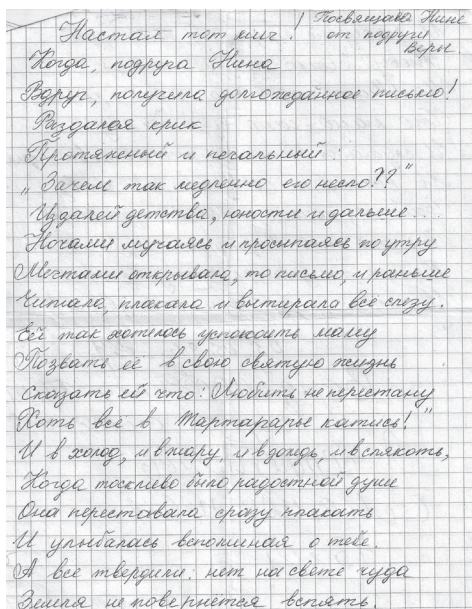 Настал тот миг!
Посвящаю Нине
от подруги
Веры.
Когда, подруга Нина
Вдруг, получила долгожданное письмо!
Раздался крик
Протяжный и печальный:
„Зачем так медленно его несло??"
Из далей детства, юности и дальше...
Ночами мучаясь и просыпаясь по утру
Мечтами открывала, то письмо, и раньше
Читала, плакала и вытирала всё слезу.
Ей так хотелось успокоить маму
Позвать её в свою святую жизнь
Сказать ей что: Любить не перестану
Хоть всё в Тартарары катись!"
И в холод, и в жару, и в дождь, и в слякоть,
Когда тоскливо было радостной душе
Она переставала сразу плакать
И улыбалась вспоминая о тебе.
А все твердили: нет на свете чуда
Земля не повернется вспять